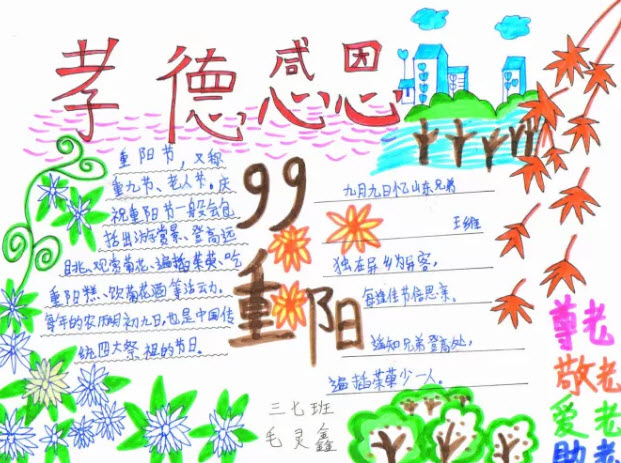 孝德感恩
重阳节,又称
重九节、老人节。庆
祝重阳节一般会包
括出游赏景、登高远
眺、观赏菊花、遍插茱萸、吃
重阳糕、饮菊花酒等活动。
每年的农历九月初九日,也是中国传
统四大祭祖的节日。
99
重阳
九月九日忆山东兄弟
王维
独在异乡为异客,
每逢佳节倍思亲。
遥知兄弟登高处,
遍插茱萸少一人。
三七班
毛灵鑫
尊老
敬老
爱老
助老